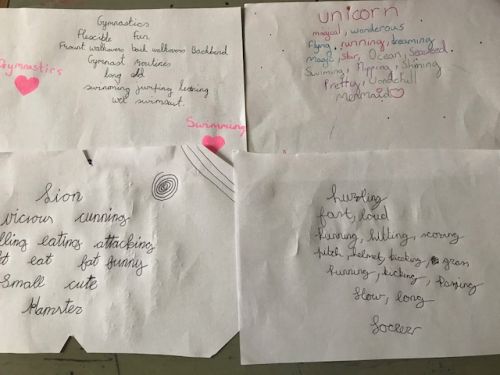 Gymnastics
Flexible fun
Frount walkovers back walkovers Backbend
Gymnast routines
long old
swimming
wet swimsuit.
Gymnastics
Swimming
unicorn
magical, wonderous
Flying, running, dreaming
Magic, Star, Ocean, Seaweed
Swiming, flipping, Shining
Pretty,
Mermaid
Lion
vicious cunning
lling eating attacking
eat fat funny
Small cute
Hamster
hurling
fast, loud
Running, hitting, scoring
pitch, helmet, kicking, grass
Running, kicking,
slow, long
Soccer